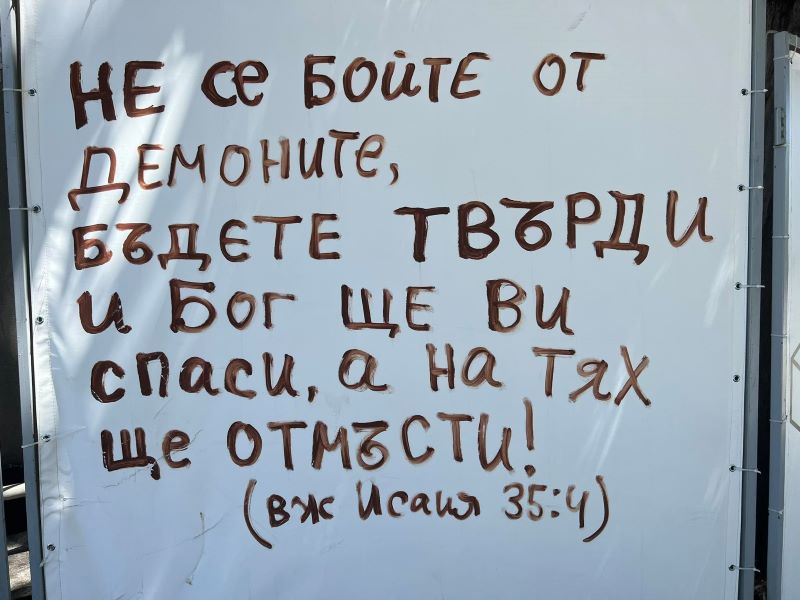 НЕ се БОЙТЕ ОТ
ДЕМОНИТе,
БЪДЕТЕ ТВЪРДИ
и Бог ЩЕ ВИ
спаси, а на тях
ще ОТМЪСТИ!
(вж Исаия 35:4)